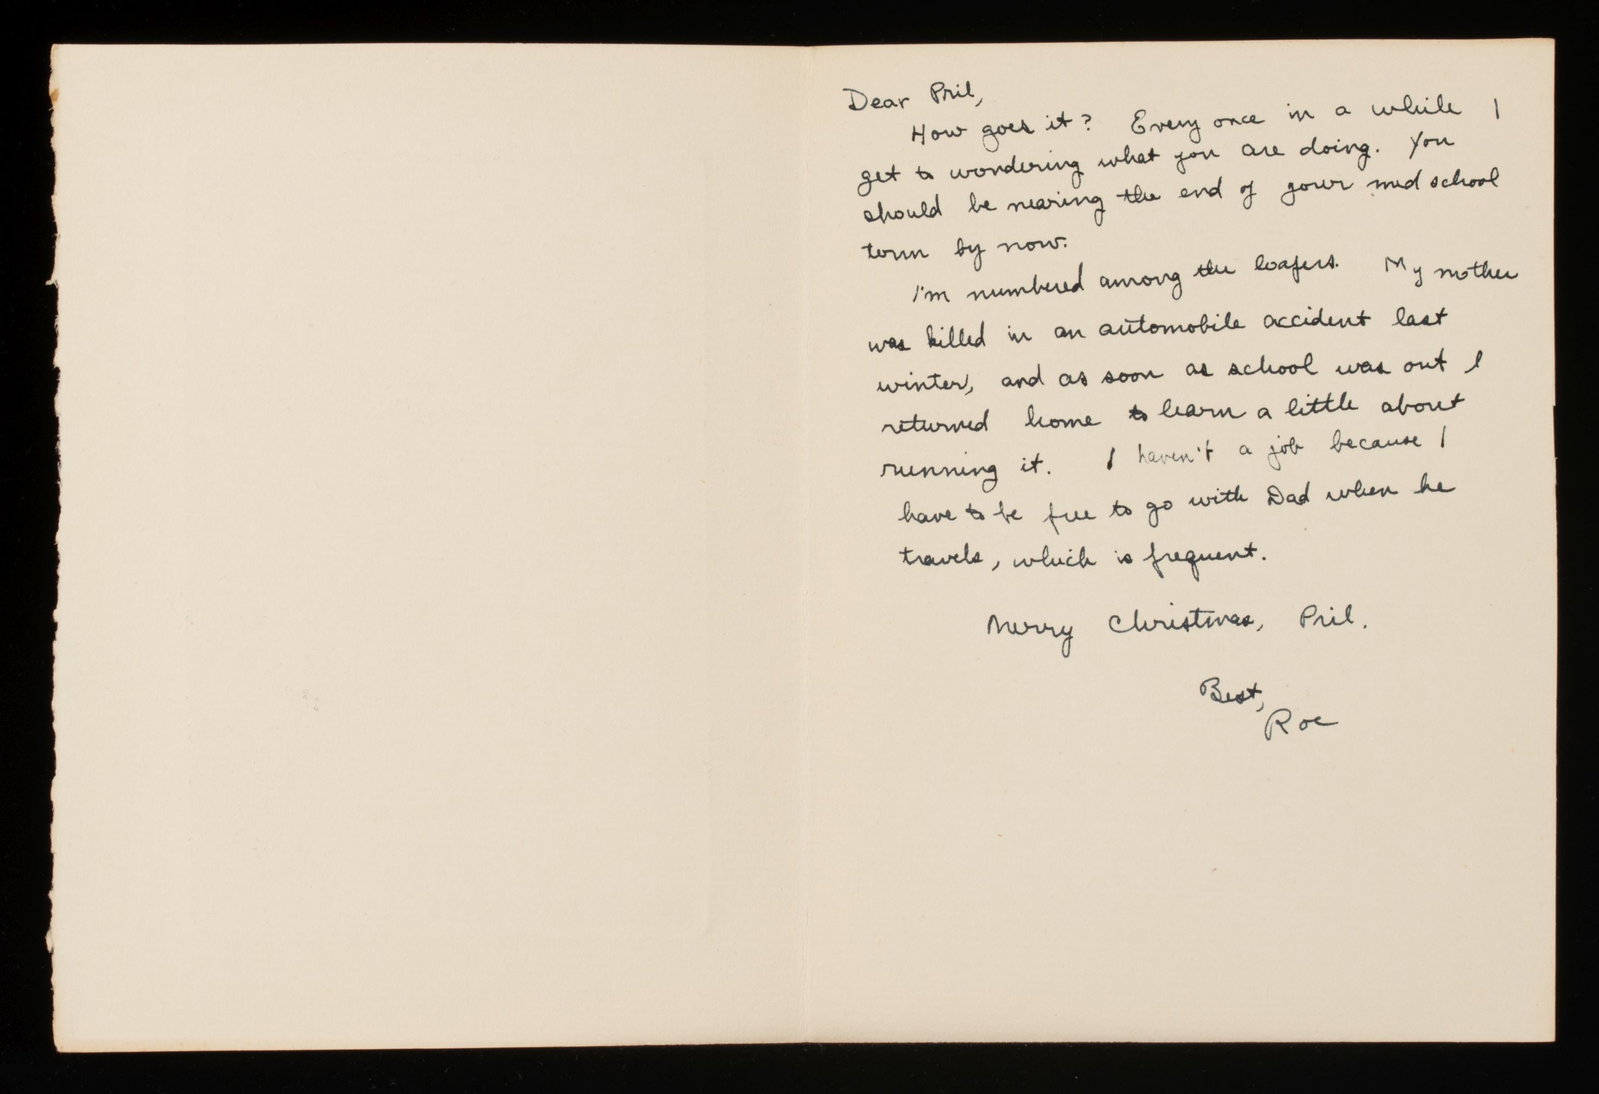 Dear Pril,
How goes it? Every once in a while I
get to wondering what you are doing. You
should be nearing the end of your med school
term by now.
I'm numbered among the loafers. My mother
was killed in an automobile accident last
winter, and as soon as school was out I
returned home to learn a little about
running it. I haven't a job because I
have to be free to go with Dad when he
travels, which is frequent.
Merry Christmas, Pril.
Best,
Roe